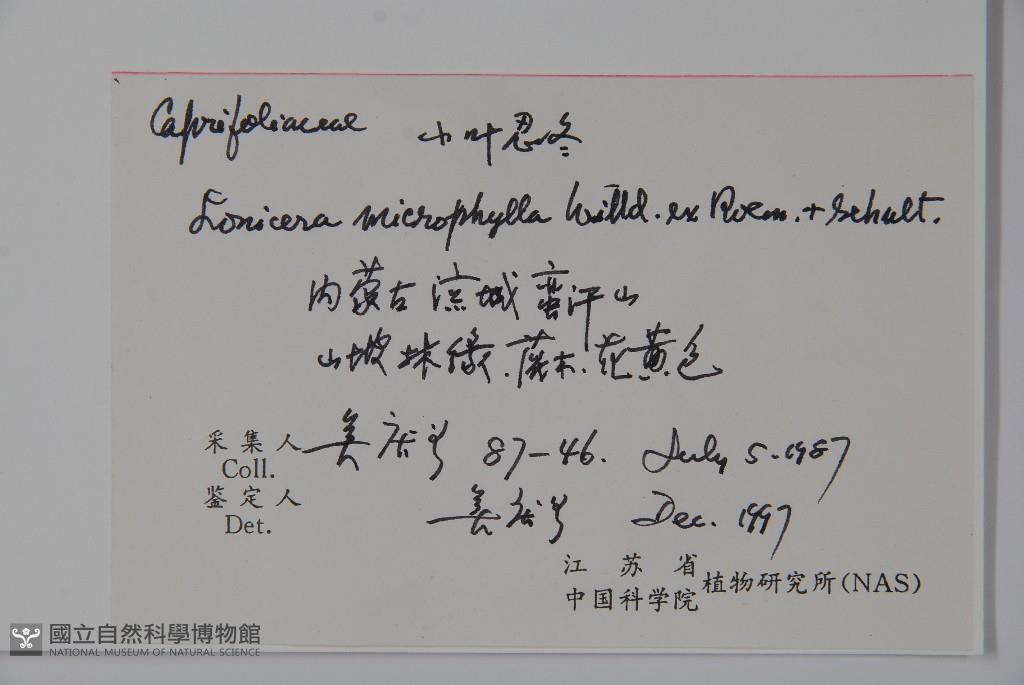 Caprifoliaceae 小叶忍冬
Lonicera microphylla Willd. ex Roem. + Schult.
内蒙古 凉城 蛮汗山
山坡林缘. 灌木. 花黄色
采集人
Coll. 87-46. July 5. 1987
鉴定人
Det. Dec. 1997
江苏省
中国科学院 植物研究所(NAS)
國立自然科學博物館
NATIONAL MUSEUM OF NATURAL SCIENCE